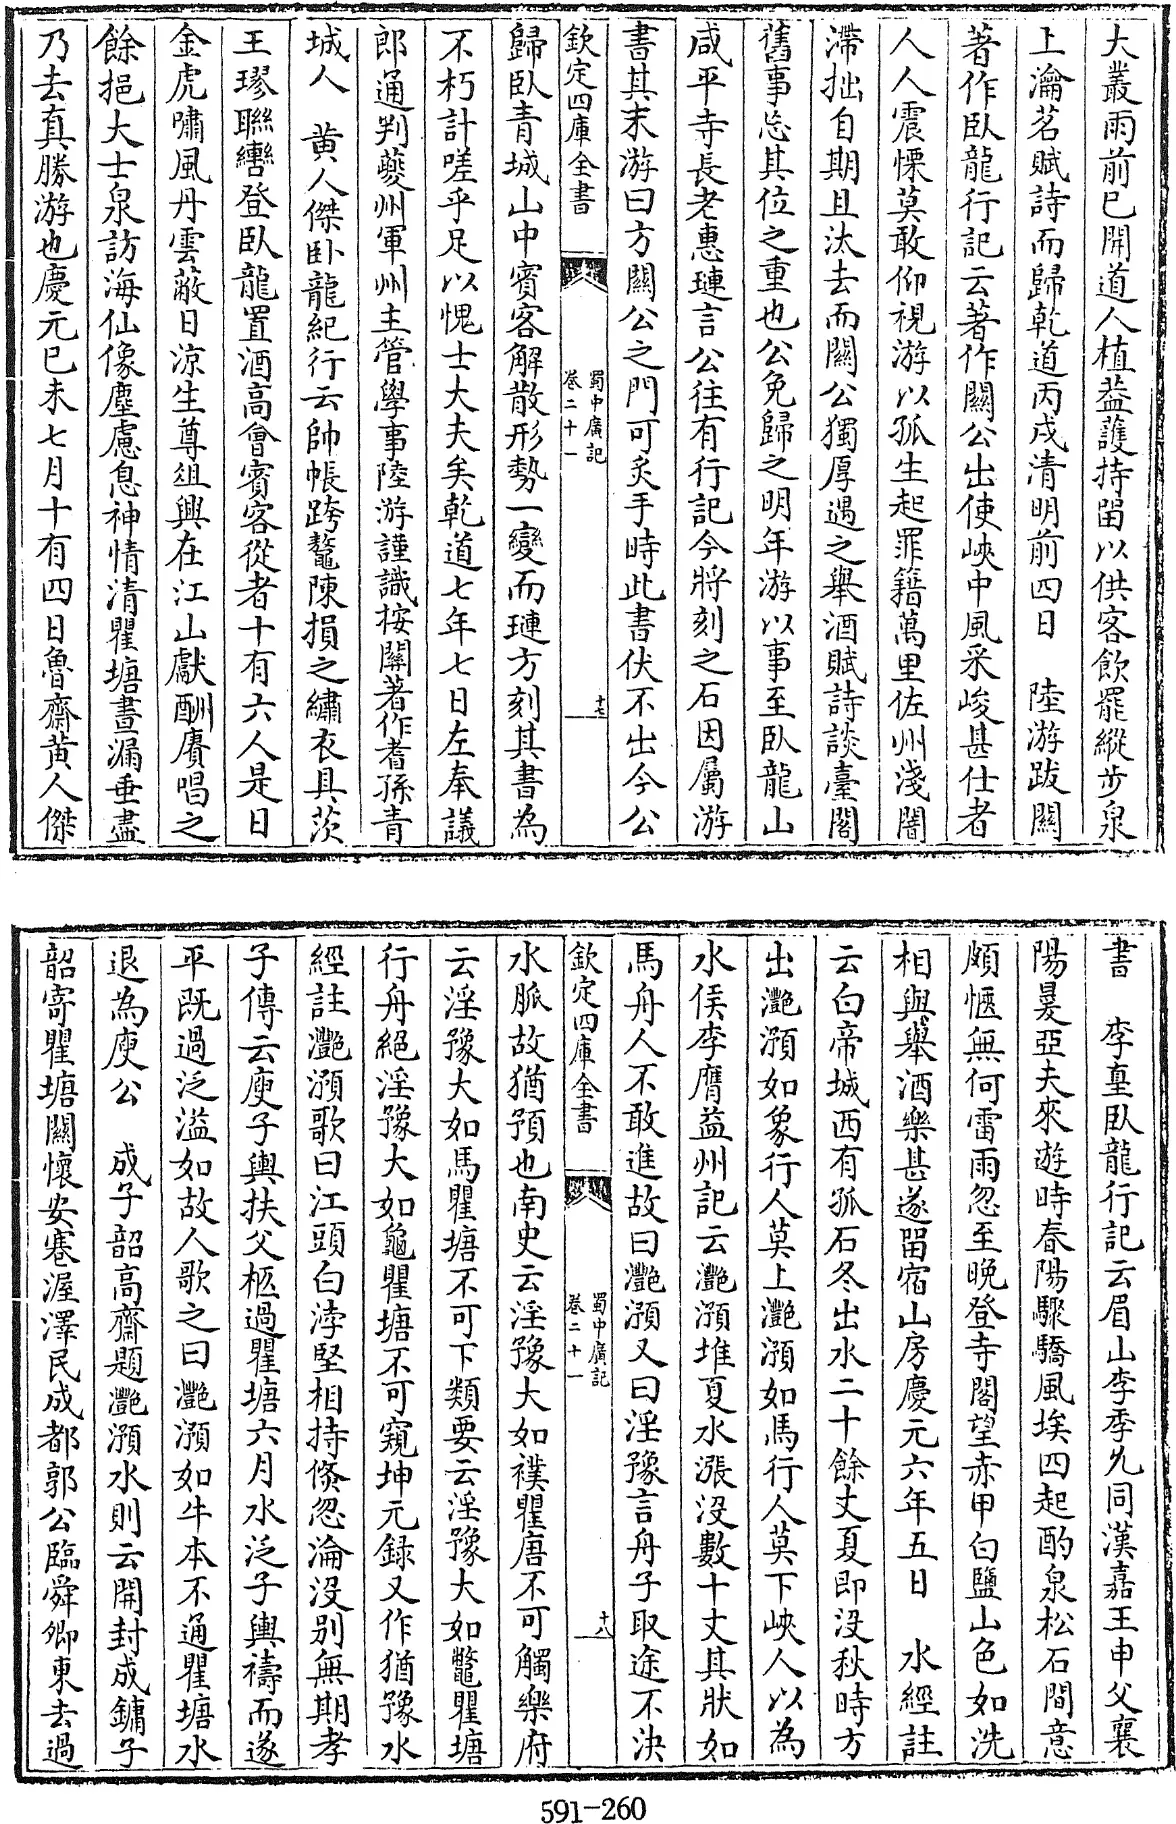 大叢雨前已開道人植葢䕶持留以供客飲罷縱步泉
上瀹茗賦詩而歸乾道丙戌清明前四日　陸游跋關
著作臥龍行記云著作關公出使峽中風采峻甚仕者
人人震慄莫敢仰視游以孤生起罪籍萬里佐州淺闇
滯拙自期且汰去而關公獨厚遇之舉酒賦詩談臺閣
舊事忘其位之重也公免歸之明年游以事至臥龍山
咸平寺長老惠璉言公往有行記今將刻之石因屬游
書其末游曰方關公之門可炙手時此書伏不出今公
欽定四庫全書
蜀中廣記
卷二十一
十七
歸臥青城山中賓客解散形勢一變而璉方刻其書為
不朽計嗟乎足以愧士大夫矣乾道七年七日左奉議
郎通判夔州軍州主管學事陸游謹識按關著作耆孫青
城人　黄人傑卧龍紀行云帥帳跨鼇陳損之繡衣具茨
王璆聯轡登臥龍置酒高會賓客從者十有六人是日
金虎嘯風丹雲蔽日凉生尊俎興在江山獻酬賡唱之
餘挹大士泉訪海仙像塵慮息神情清瞿塘晝漏垂盡
乃去真勝游也慶元已未七月十有四日魯齋黄人傑
書　李𡌴臥龍行記云眉山李季允同漢嘉王申父襄
陽㬅亞夫來遊時春陽驟驕風埃四起酌泉松石間意
頗愜無何雷雨忽至晚登寺閣望赤甲白鹽山色如洗
相與舉酒樂甚遂留宿山房慶元六年五日　水經註
云白帝城西有孤石冬出水二十餘丈夏即没秋時方
出灧澦如象行人莫上灧澦如馬行人莫下峽人以為
水侯李膺益州記云灧澦堆夏水漲没數十丈其狀如
馬舟人不敢進故曰灧澦又曰淫豫言舟子取途不決
欽定四庫全書
蜀中廣記
卷二十一
十八
水脈故猶預也南史云淫豫大如襆瞿唐不可觸樂府
云淫豫大如馬瞿塘不可下類要云淫豫大如鼈瞿塘
行舟絕淫豫大如龜瞿塘不可窺坤元録又作猶豫水
經註灧澦歌曰江頭白浡堅相持倐忽淪没别無期孝
子傳云庾子輿扶父柩過瞿塘六月水泛子輿禱而遂
平既過泛溢如故人歌之曰灧澦如牛本不通瞿塘水
退為庾公　成子韶高齋題灧澦水則云開封成鏞子
韶寄瞿塘關懷安蹇渥澤民成都郭公臨舜卿東去過
591-260